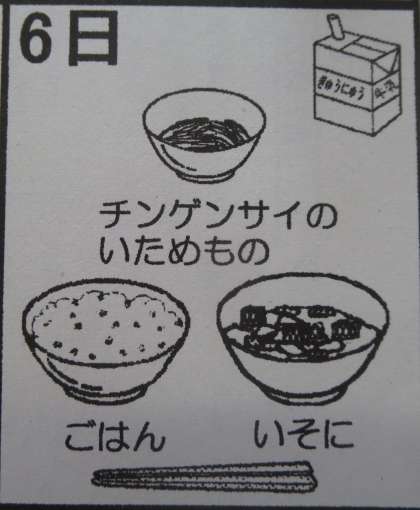 6日
ぎゅうにゅう
牛乳
チンゲンサイの
いためもの
ごはん
いそに